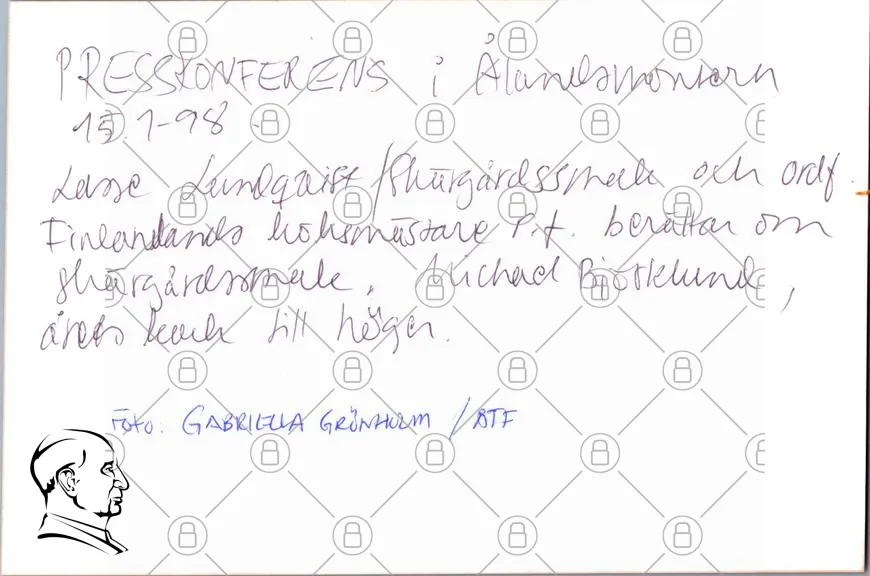 PRESSKONFERENS i Ålandsmontern
15.1-98
Lasse Lundqvist/Skärgårdssmak och ordf.
Finlands köksmästare r.f. berättar om
skärgårdssmak. Michael Björklund,
årets kock till höger.
Foto: GABRIELLA GRÖNHOLM /ÅTF